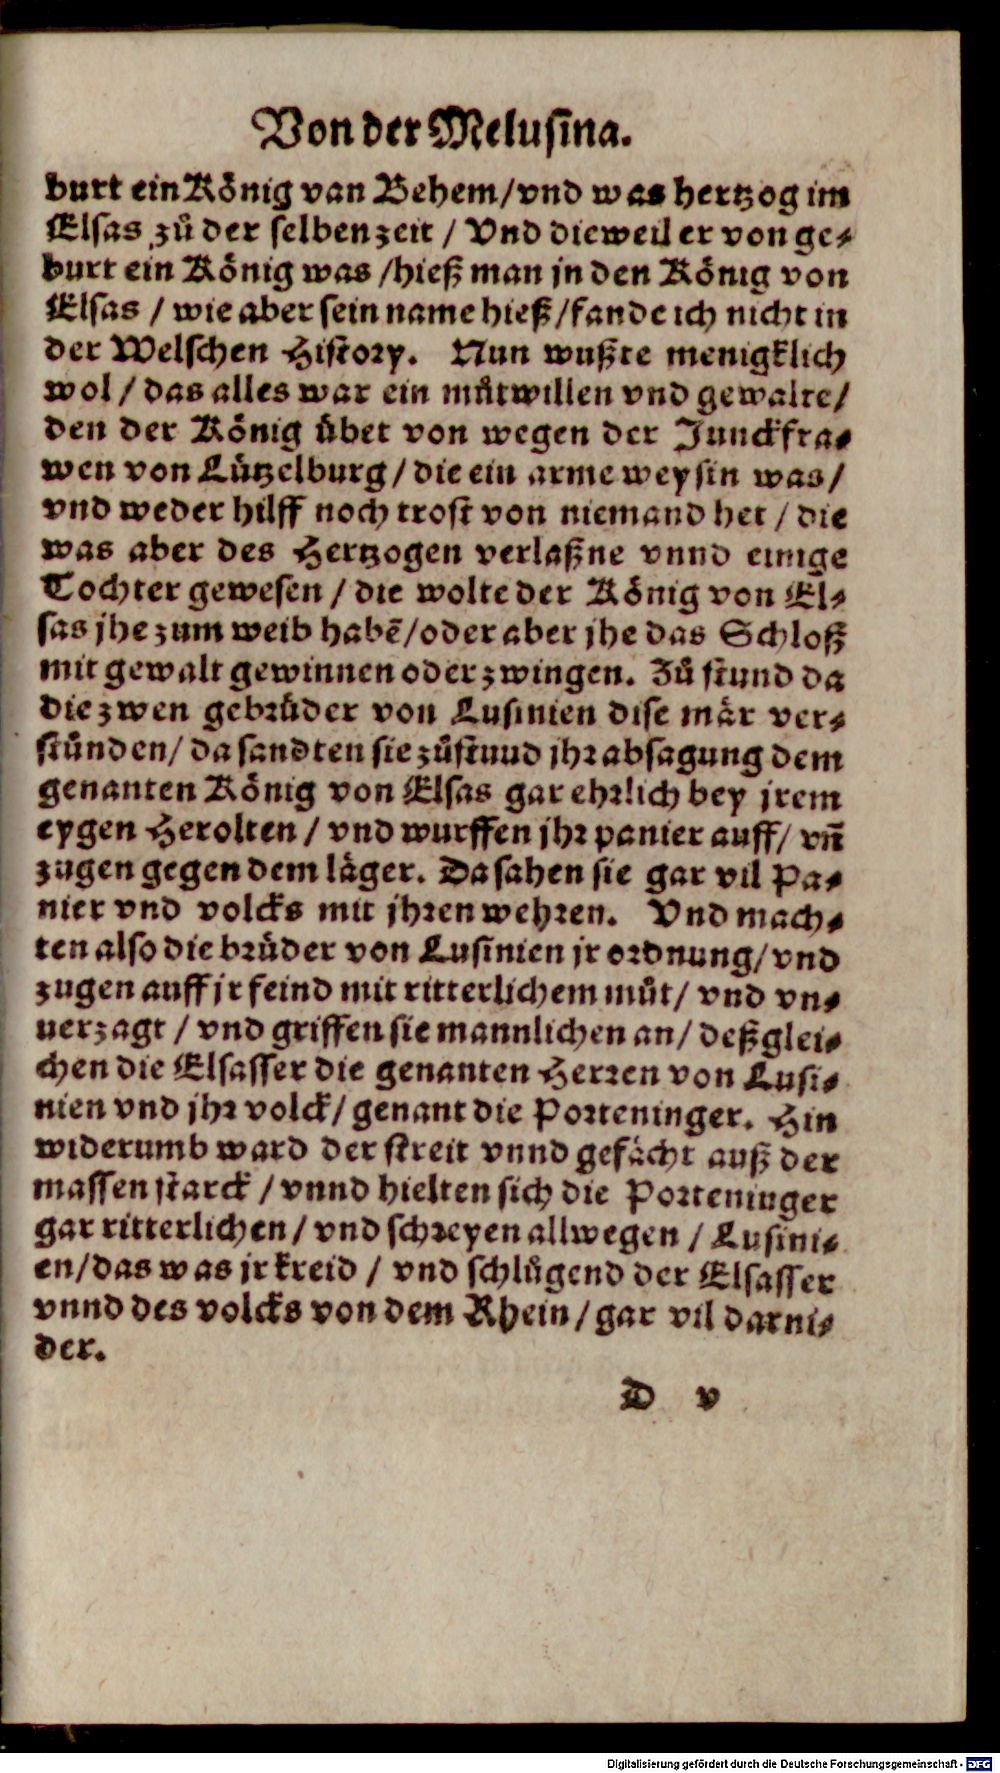 Von der Melusina.
burt ein König van Behem/vnd was hertzog im
Elsas zů der selben zeit / Vnd dieweil er von ge⸗
burt ein König was /hieß man jn den König von
Elsas / wie aber sein name hieß/fande ich nicht in
der Welschen History. Nun wußte menigklich
wol / das alles war ein můtwillen vnd gewalte/
den der König übet von wegen der Junckfra⸗
wen von Lützelburg/ die ein arme weysin was/
vnd weder hilff noch trost von niemand het / die
was aber des Hertzogen verlaßne vnnd einige
Tochter gewesen / die wolte der König von El⸗
sas jhe zum weib habẽ/oder aber jhe das Schloß
mit gewalt gewinnen oder zwingen. Zů stund da
die zwen gebrůder von Lusinien dise mär ver⸗
stůnden/ da sandten sie zůstuud jhr absagung dem
genanten König von Elsas gar ehrlich bey jrem
eygen Herolten / vnd wurffen jhr panier auff/ vñ
zugen gegen dem läger. Da sahen sie gar vil Pa⸗
nier vnd volcks mit jhren wehren. Vnd mach⸗
ten also die brůder von Lusinien jr ordnung/ vnd
zugen auff jr feind mit ritterlichem můt/ vnd vn⸗
uerzagt / vnd griffen sie mannlichen an/ deßglei⸗
chen die Elsasser die genanten Herren von Lusi⸗
nien vnd jhr volck/ genant die Porteninger. Hin
widerumb ward der streit vnnd gefächt auß der
massen starck / vnnd hielten sich die Porteninger
gar ritterlichen/ vnd schreyen allwegen / Lusini⸗
en/das was jr kreid / vnd schlůgend der Elsasser
vnnd des volcks von dem Rhein/ gar vil darni⸗
der.
D v
Digitalisierung gefördert durch die Deutsche Forschungsgemeinschaft - DFG